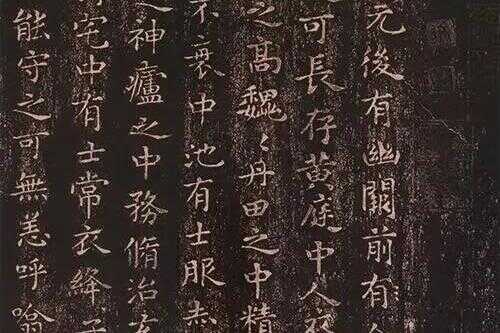 元後有幽闕前有
可長存黃庭中人衣
之高魏〻丹田之中精
不衰中池有士服赤
神廬之中務脩治玄
宅中有士常衣絳子
能守之可無恙呼噏